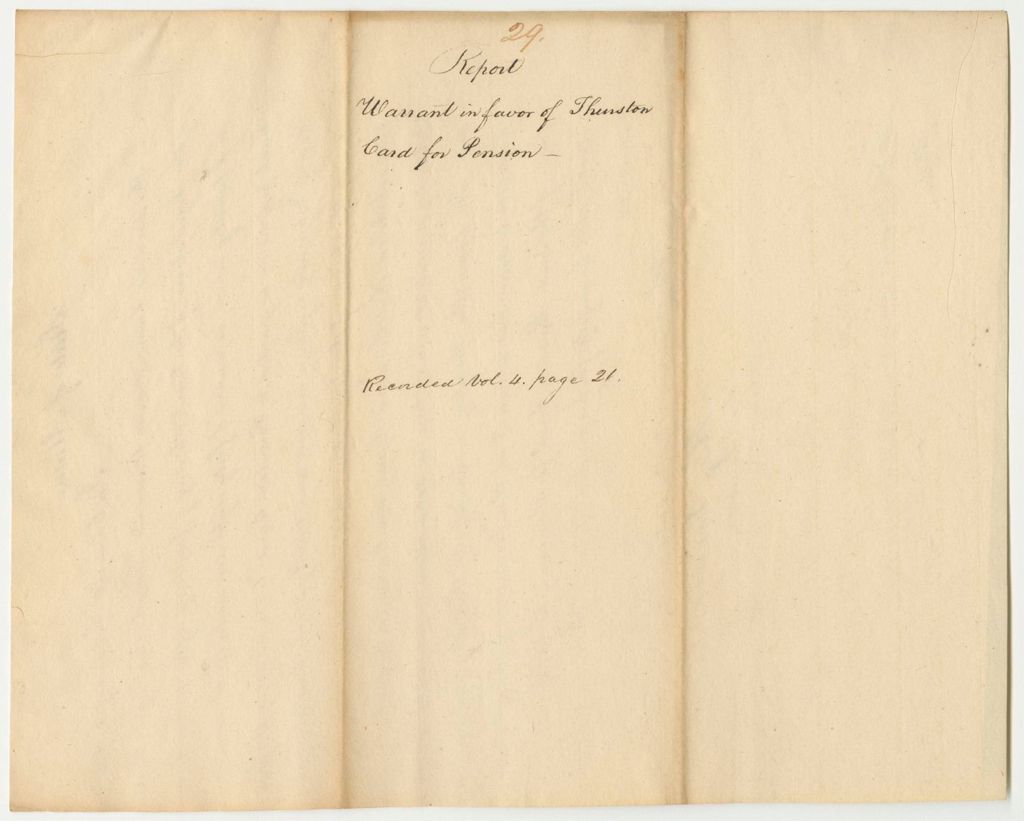 29.
Report
Warrant in favor of Thurston
Card for Pension —
Recorded Vol. 4. page 21.